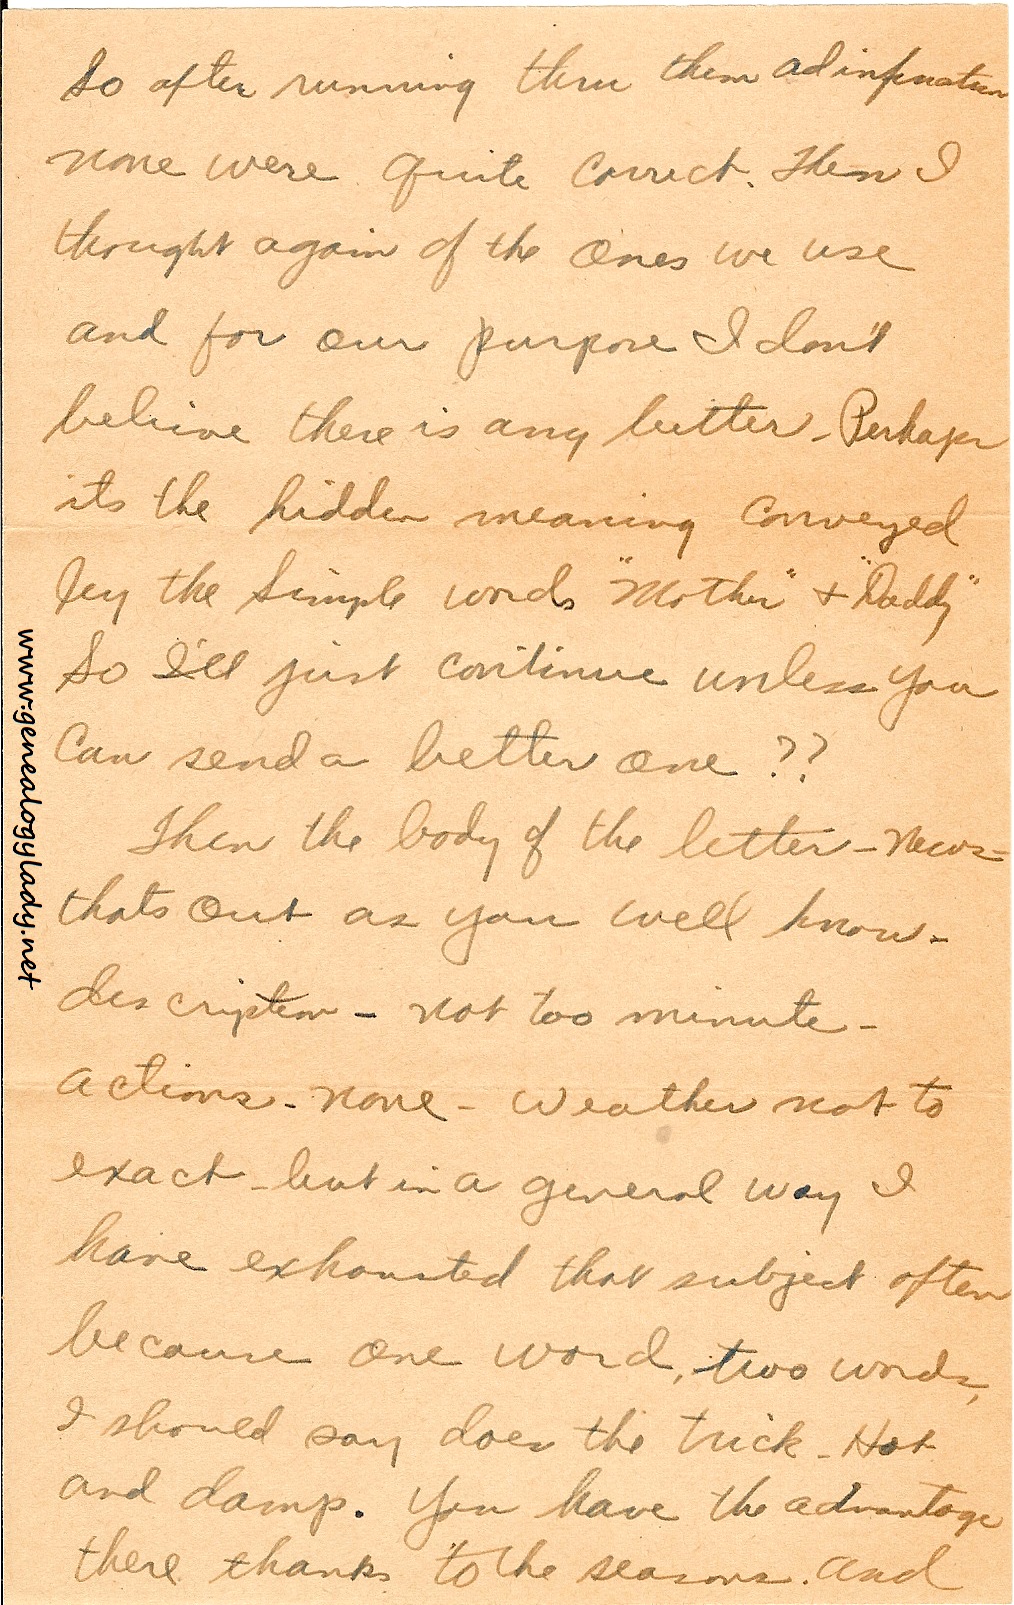 So after running thru them ad infinatum
none were quite correct. Then I
thought again of the ones we use
and for our purpose I don't
believe there is any better - Perhaps
its the hidden meaning conveyed
by the simple words "Mother" + "Daddy"
So I'll just continue unless you
can send a better one ??
Then the body of the letter - News -
thats out as you well know -
description - not too minute -
actions - none - weather not to
exact - but in a general way I
have exhausted that subject often
because one word, two words,
I should say does the trick - Hot
and damp. You have the advantage
there thanks to the seasons. And
www.genealogylady.net